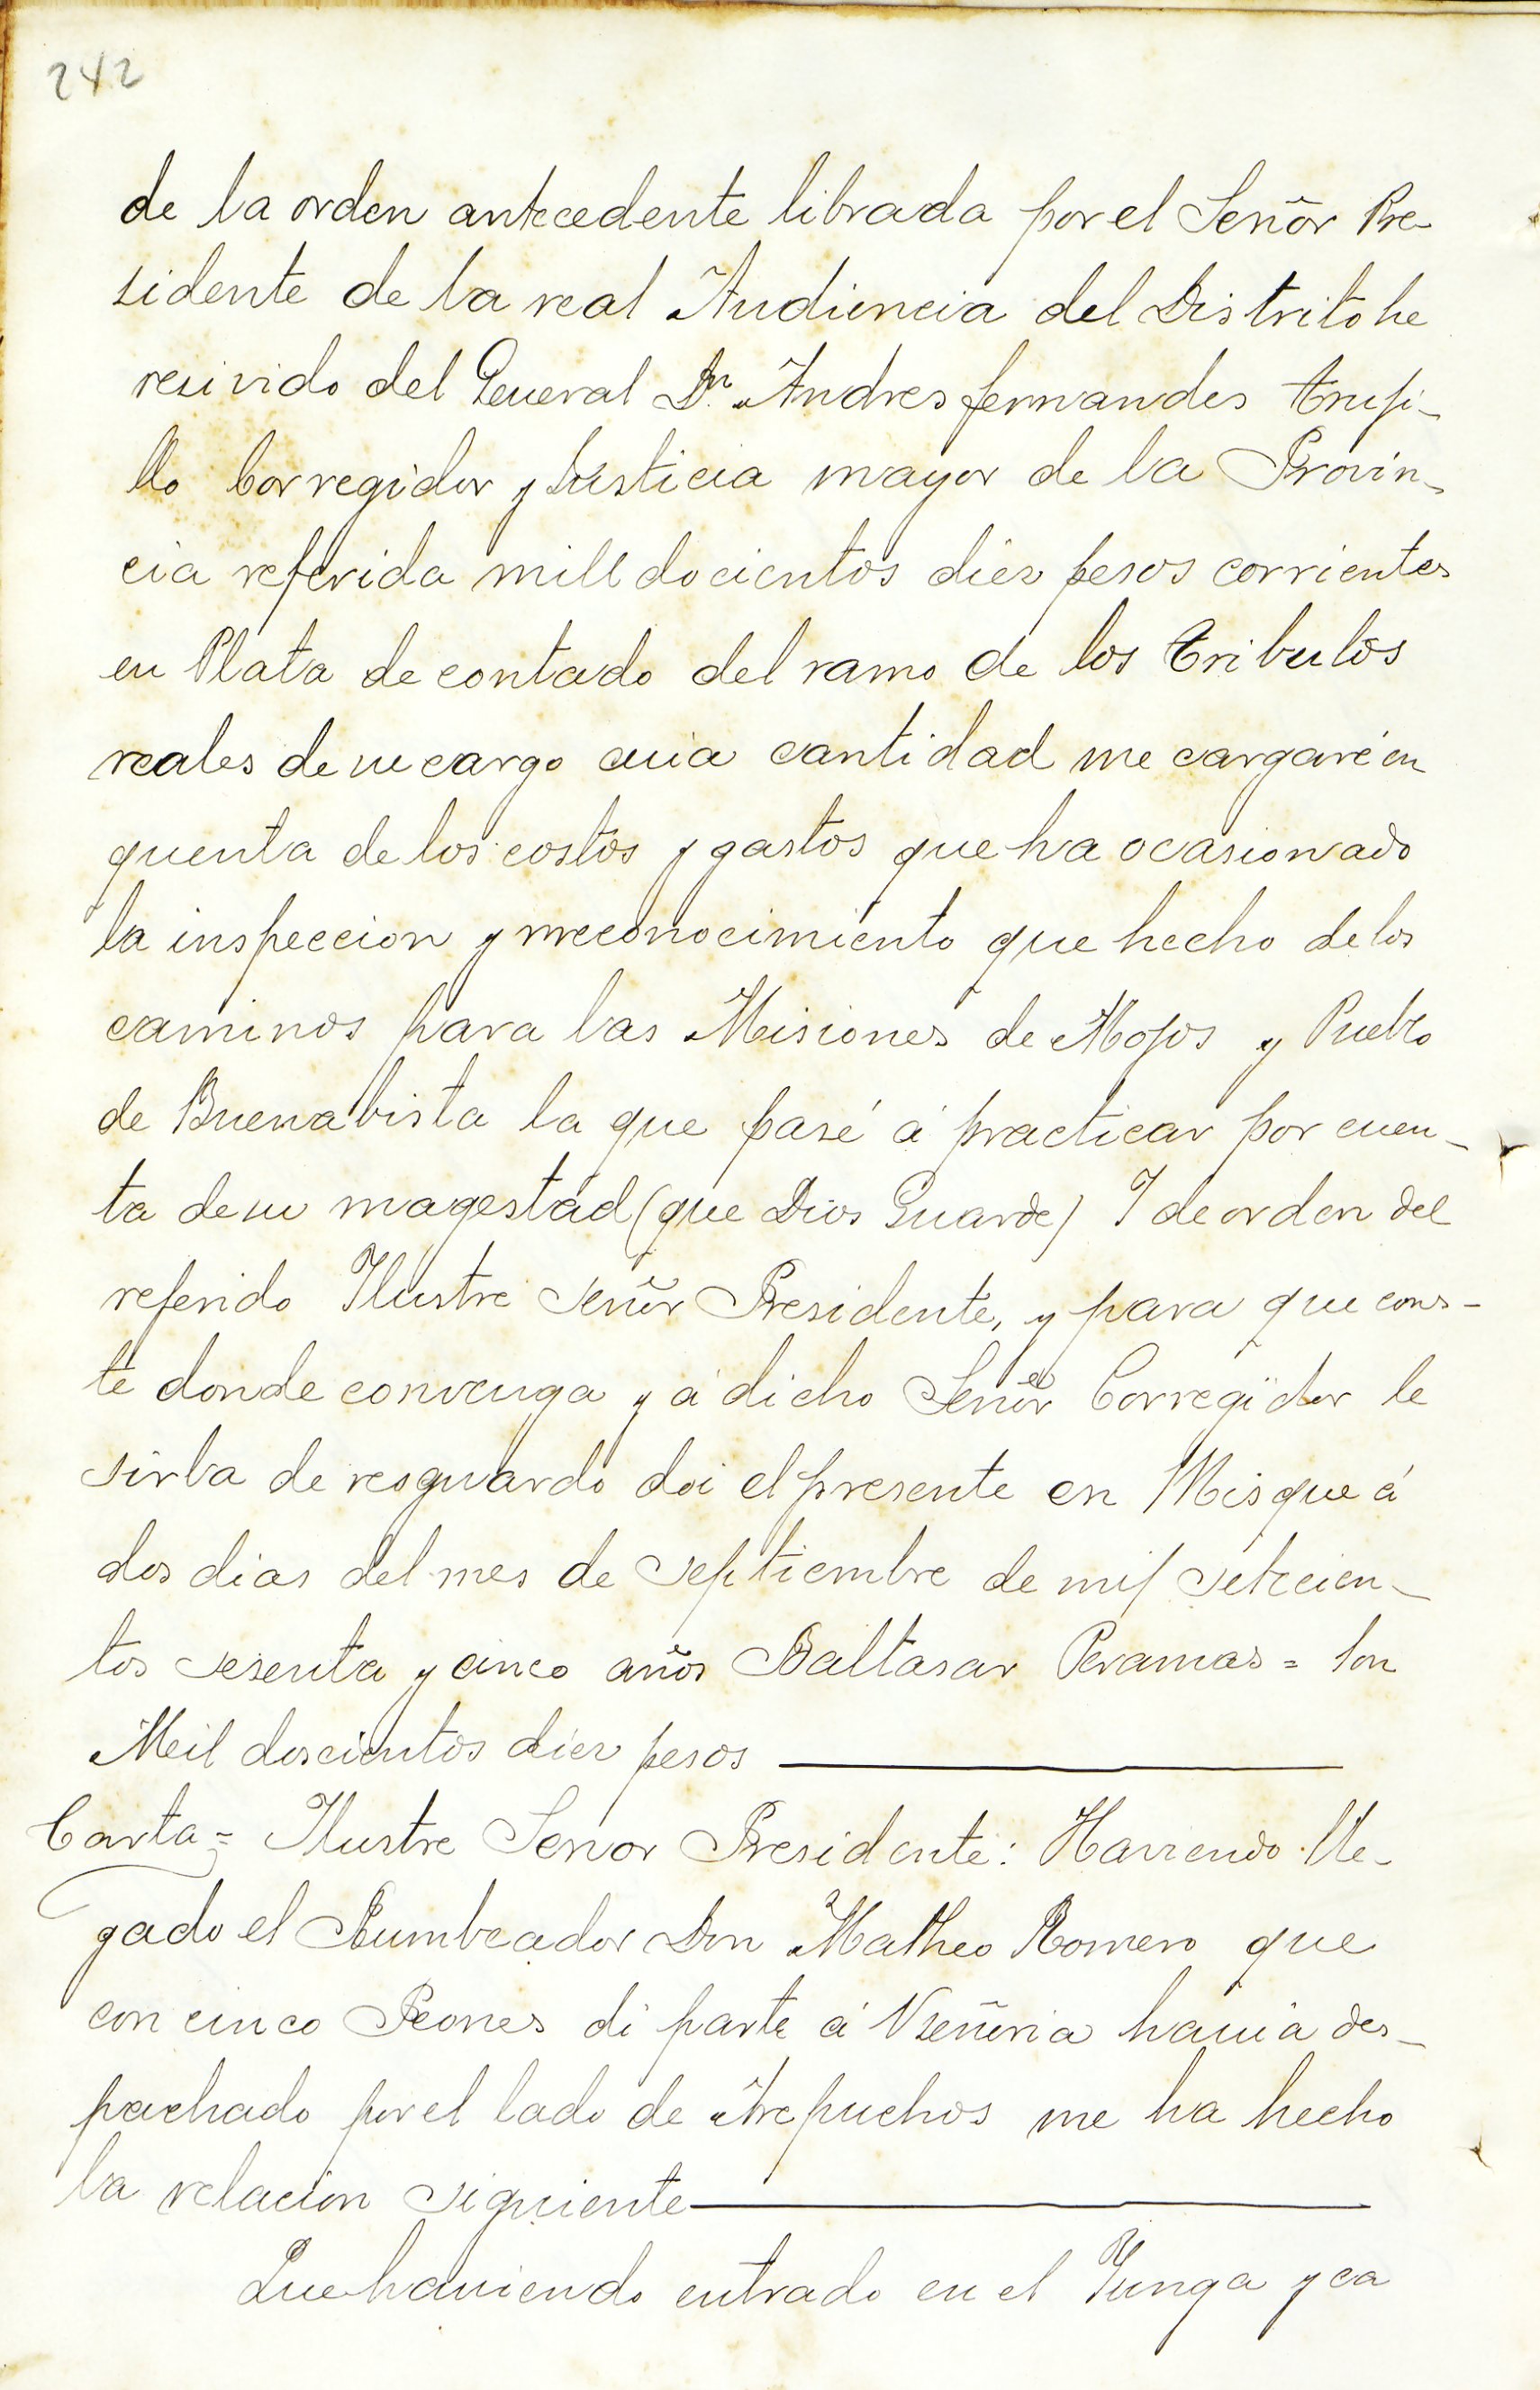 242
de la orden antecedente librada por el Señor Pre-
sidente de la real Audiencia del Distrito he
recivido del General Dn. Andres fernandes truji-
llo Corregidor y Justicia mayor de la Provin-
cia referida mill docientos diez pesos corrientes
en Plata de contado del ramo de los tributos
reales de su cargo cuia cantidad me cargaré en
quenta de los costos y gastos que ha ocasionado
la inspeccion y rreconocimiento que hecho de los
caminos para las Misiones de Mojos y Pueblo
de Buenabista la que pasé á practicar por cuen-
ta de su magestad (que Dios Guarde) I de orden del
referido Ilustre señor Presidente, y para que cons-
te donde convenga y á dicho Señor Corregidor le
sirba de resguardo doi el presente en Misque á
dos dias del mes de septiembre de mil setecien-
tos sesenta y cinco años Baltasar Peramas = Son
Mil doscientos diez pesos
Carta = Ilustre Senor Presidente: Haviendo lle-
gado el Rumbeador Don Matheo Romero que
con cinco Peones di parte á Vseñoria hauia des-
pachado por el lado de Arepuchos me ha hecho
la relacion siguiente
Que hauiendo entrado en el Yunga y ca